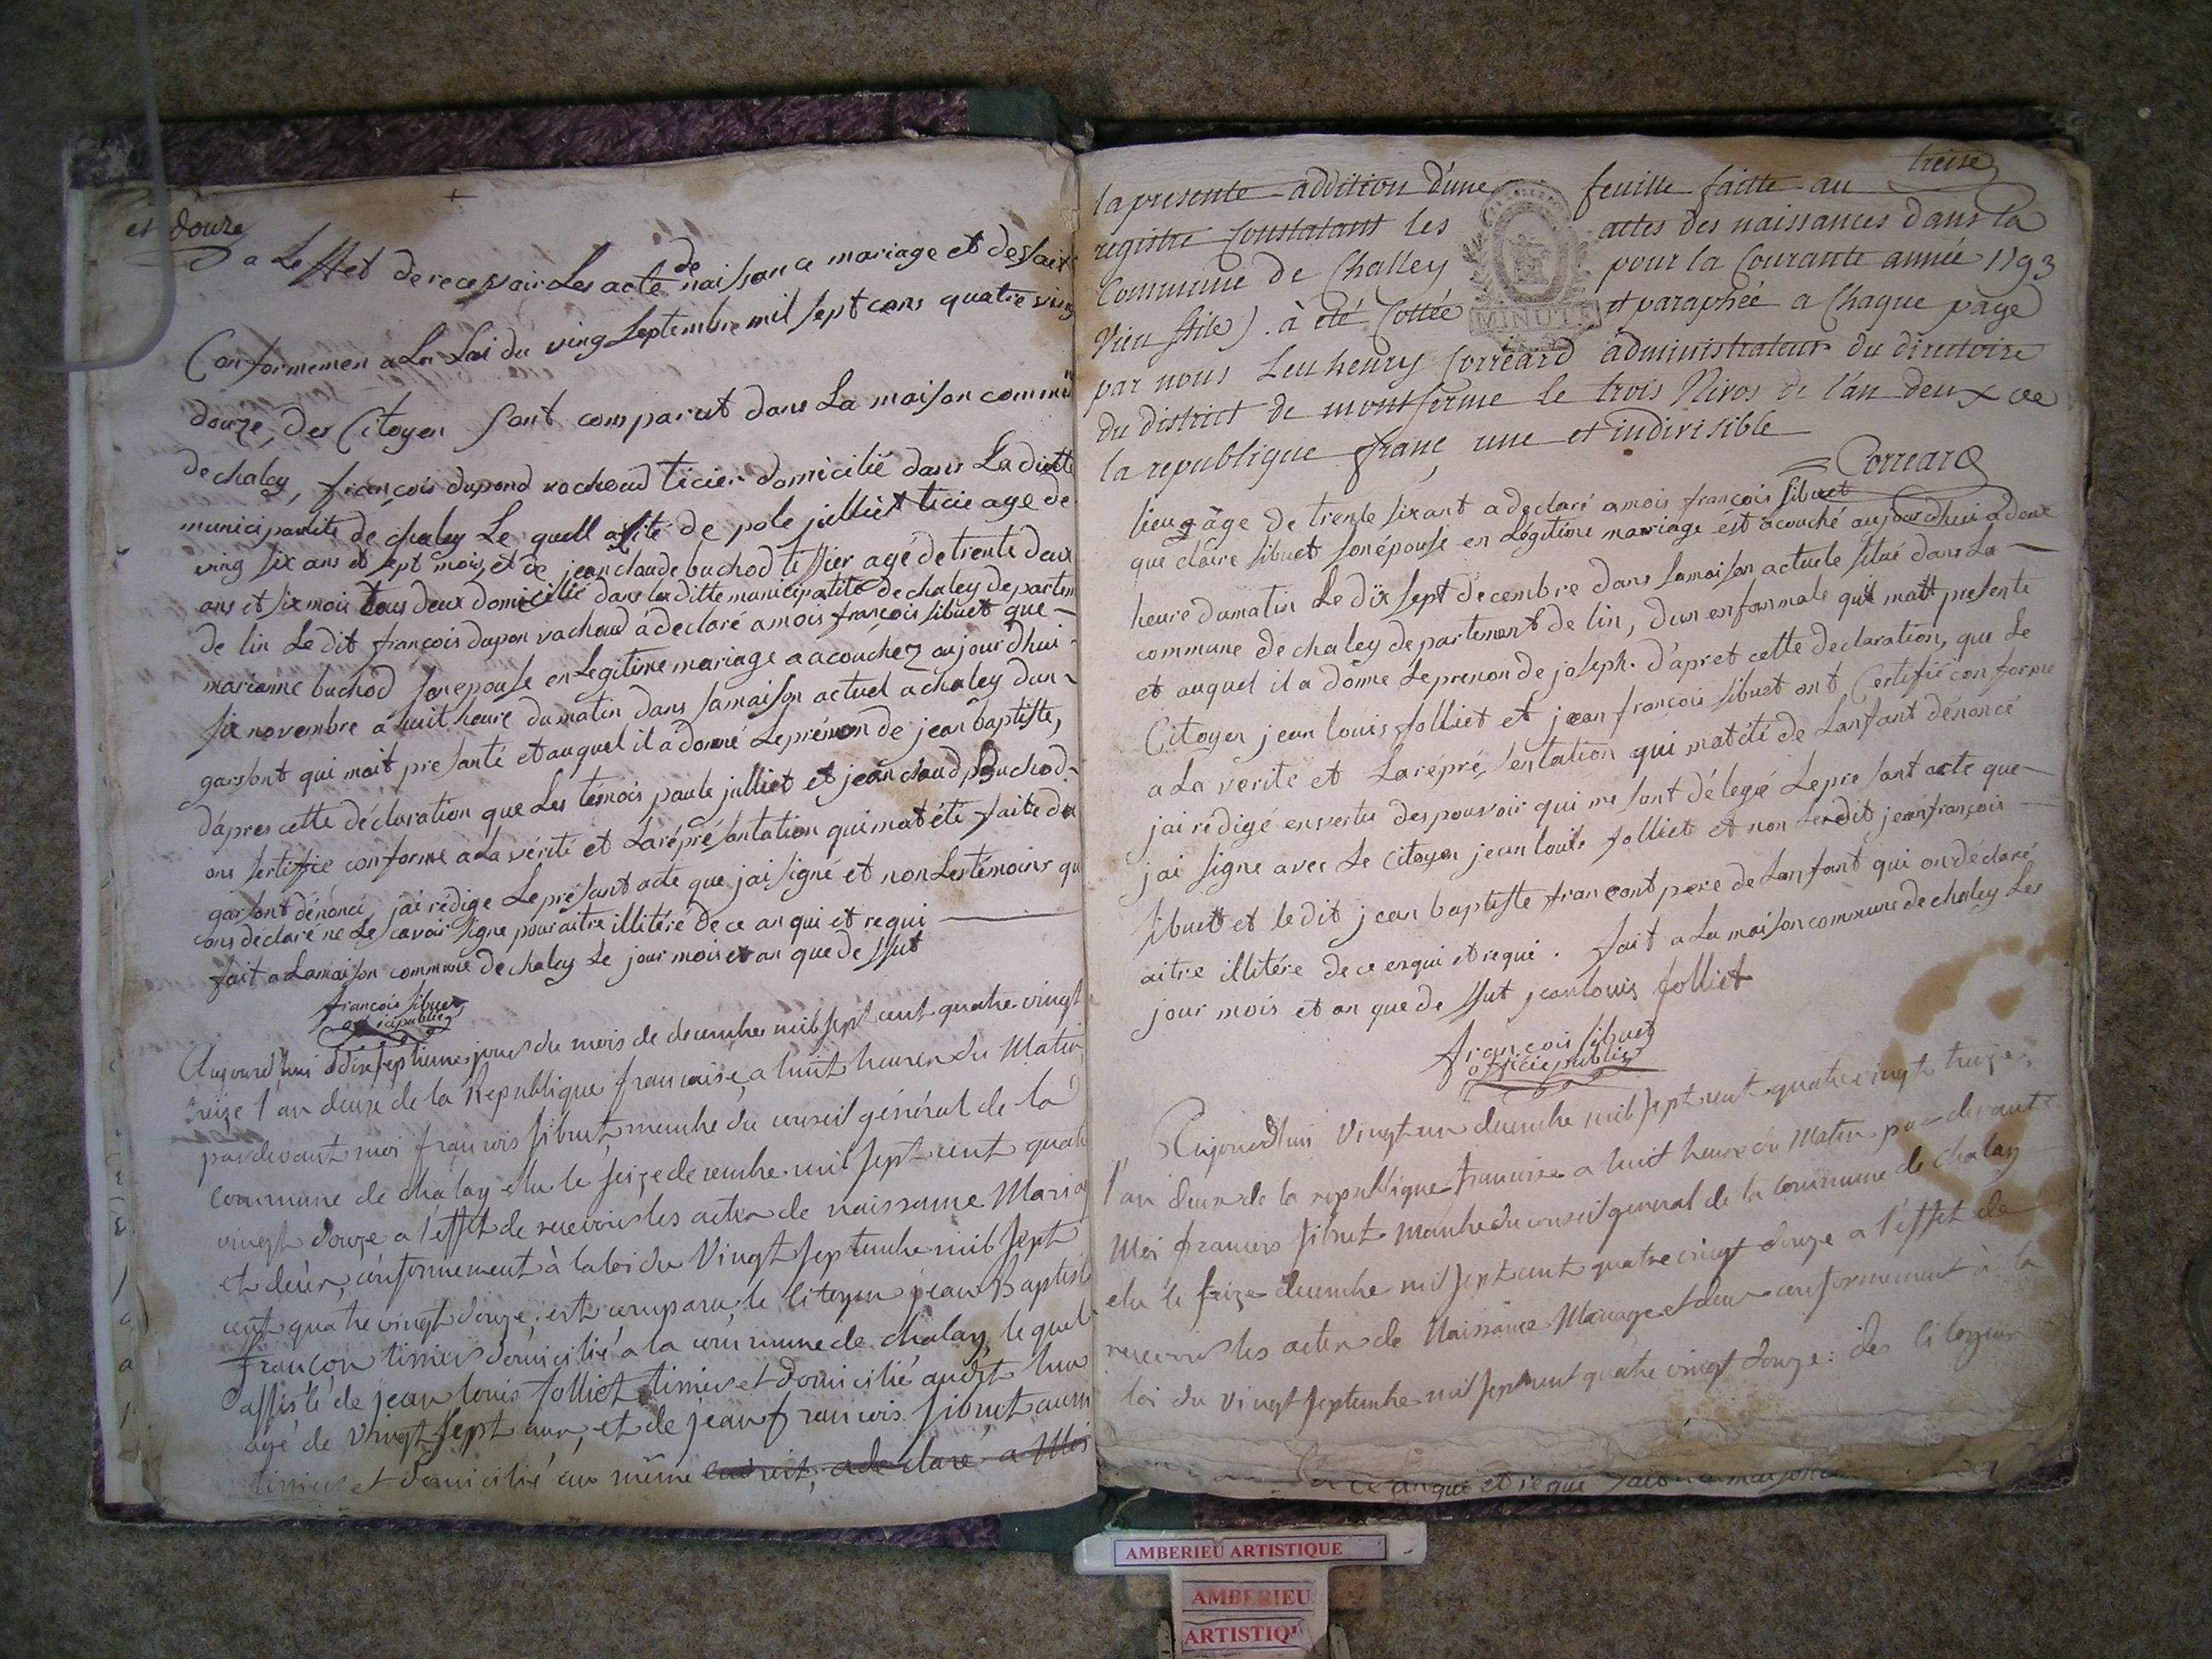 et douze
a Leffet de recevoir Les acte de naissance mariage et desait
Conformemen a La Loi du ving Septembre mil sept cans quatre ving
douze, des Citoyen sont comparut dans La maison commu
de chaley, françois dupond vachoud ticier domicilié dans La ditte
municipalite de chaley Le quell asité de pole julliet ticie age de
ving six ans et sept mois, et de jean claude buchod tissier agé de trente deux
ans et six mois tous deux domicilié dans la ditte municipalité de chaley departem
de lin Le dit françois dupon vachoud a déclaré a mois françois sibuet que
marianne buchod son epouse en Legitime mariage a acouchez aujourdhui
six novembre a huit heure du matin dans sa maison actuel a chaley dun
garsont qui mait presanté et auquel il a donné Le prénon de jean baptiste,
dapres cette déclaration que Les témois paule julliet et jean claud Buchod
ons sertiffie conforme a La vérité et La réprésantation qui mat été faite du
garsont dénoncé, j'ai rédige Le présant acte que j'ai signé et non Les témoins qu
ons déclaré ne Le scavoir signe pour aitre illitéré de ce an qui et requi
fait a La maison commune de chaley Le jour mois et an que de ssut
françois sibuet
Aujourd'huui dixseptieme jour du mois de decembre mil sept cent quatre vingt
treize l'an deux de la Republique française, a huit heures du Matin
pardevant moi françois sibuet, membre du conseil général de la
commune de chalay elu le seize decembre mil sept cent quat
vingt douze a l'effet de recevoir les actes de naissance Maria
et decès, conformement à la loi du Vingt septembre mil sept
cent quatre vingt douze; est comparu le citoyen jean Baptist
françon tissier domicilié a la commune de chalay, lequel
assisté de jean louis folliet tissier et domicilié audit lieu
agé de Vingt sept ans, et de jean françois sibuet aussi
tissier et domicilié au même endroit, a déclaré a Moi
treise
la presente addition d'une feuille faitte au
registre Constatant les actes des naissances dans la
Commune de Challey pour la Courante année 1793
Vieu stile). à été Cottée et paraphée a Chaque page
MINUTE
par nous Leu henry Corréard administrateur du directoire
du district de montferme le trois Nivos de l'an deux de
la republique franc, une et indivisible
Correard
lieu, âge de trente six ant a declaré a mois françois sibuet
que claire sibuet son épouse en Légitime mariage ést acouché aujourdhui a deux
heure du matin Le dix sept décembre dans sa maison actuele situé dans La
commune de chaley departement de lin, dun enfan male qui matt presenté
et auquel il a donne Le prenon de joseph. d'apret cette declaration, que Le
Citoyen jean louis folliet et jean françois sibuet ont Certifié conforme
a La verité et La réprésentation qui mat été de Lanfant dénoncé
jai rédigé en vertu des pouvoir qui me sont délegé Le presant acte que
jai signe avec Le Citoyen jean louis folliet et non Ledit jean françois
sibuett et le dit jean baptiste françont pere de Lanfant qui on déclaré
aitre illitére de ce enqui et requi. fait a La maison commune de chaley Les
jour mois et an que de ssut jean louis folliet
françois sibuet
officie public
Aujourdhui Vingt un decembre mil sept cent quatre vingt treize,
l'an deux de la republique françoise a huit heure du Matin par devant
Moi françois sibuet Membre du conseil general de la commune de chalay
elu le seize decembre mil sept cent quatre vingt douze a l'effet de
recevoir les actes de Naissance Mariage et deces conformement à la
loi du vingt septembre mil sept cent quatre vingt douze: des citoyens
de ce anqui et requi
AMBERIEU ARTISTIQUE
AMBERIEU
ARTISTIQ